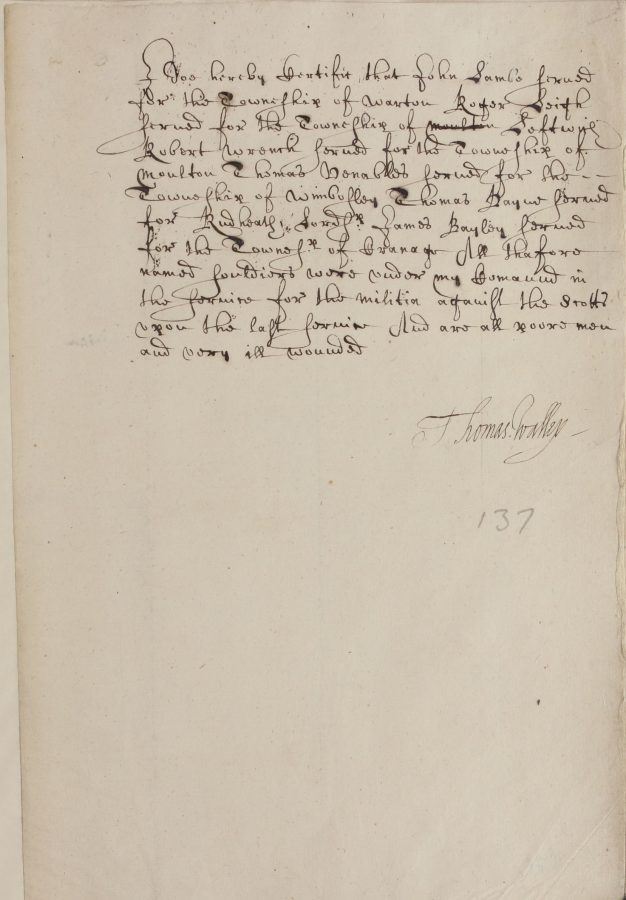 I Doe hereby Certifie that John Lambe serued
for the Towneshipp of Warton Roger Leigh
serued for the Towneship of moulton Leftwich
Robert Wrench serued for the Towneship of
moulton Thomas Venables serued for the
Towneship of Wimbostey Thomas serued
for Rudheath Lordshp James Bayley serued
for the Towneshp of Cranage All thafore
named souldiers were vnder my Comaund in
the seruice for the militia against the Scotts
vpon the last seruice And are all poore men
and very ill wounded
Thomas Walley
137